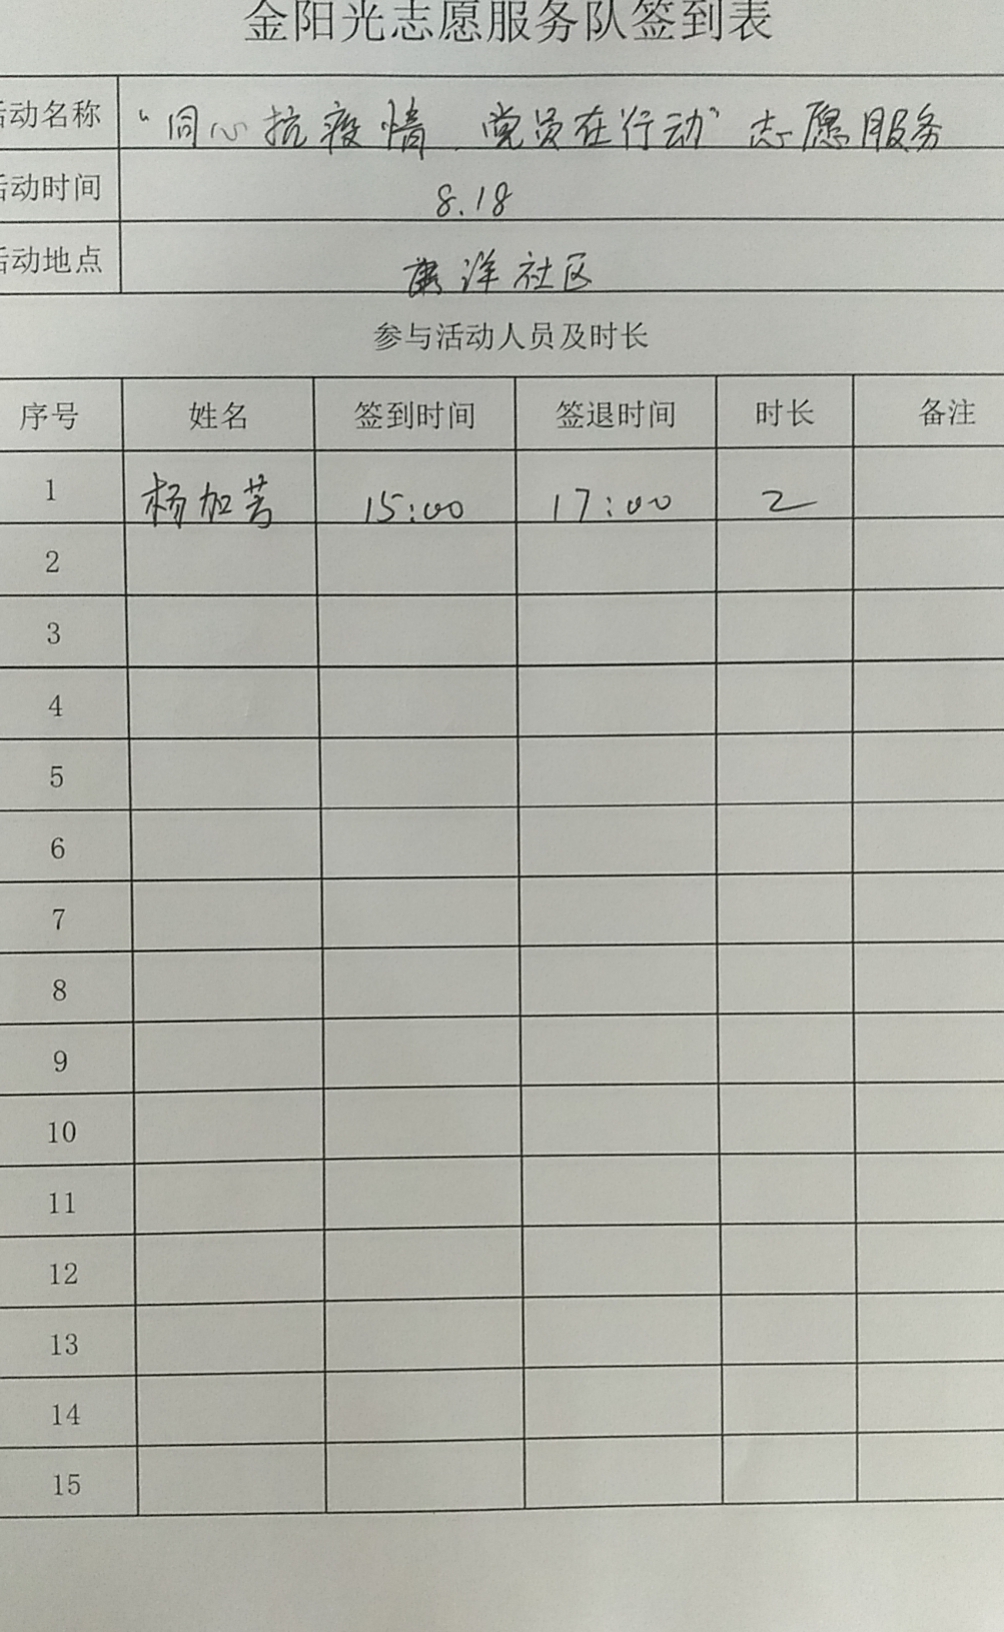 金阳光志愿服务队签到表
活动名称 “同心抗疫情 党员在行动” 志愿服务
活动时间 8.18
活动地点 洋社区
参与活动人员及时长
序号 姓名 签到时间 签退时间 时长 备注
1 杨加芳 15:00 17:00 2
2
3
4
5
6
7
8
9
10
11
12
13
14
15